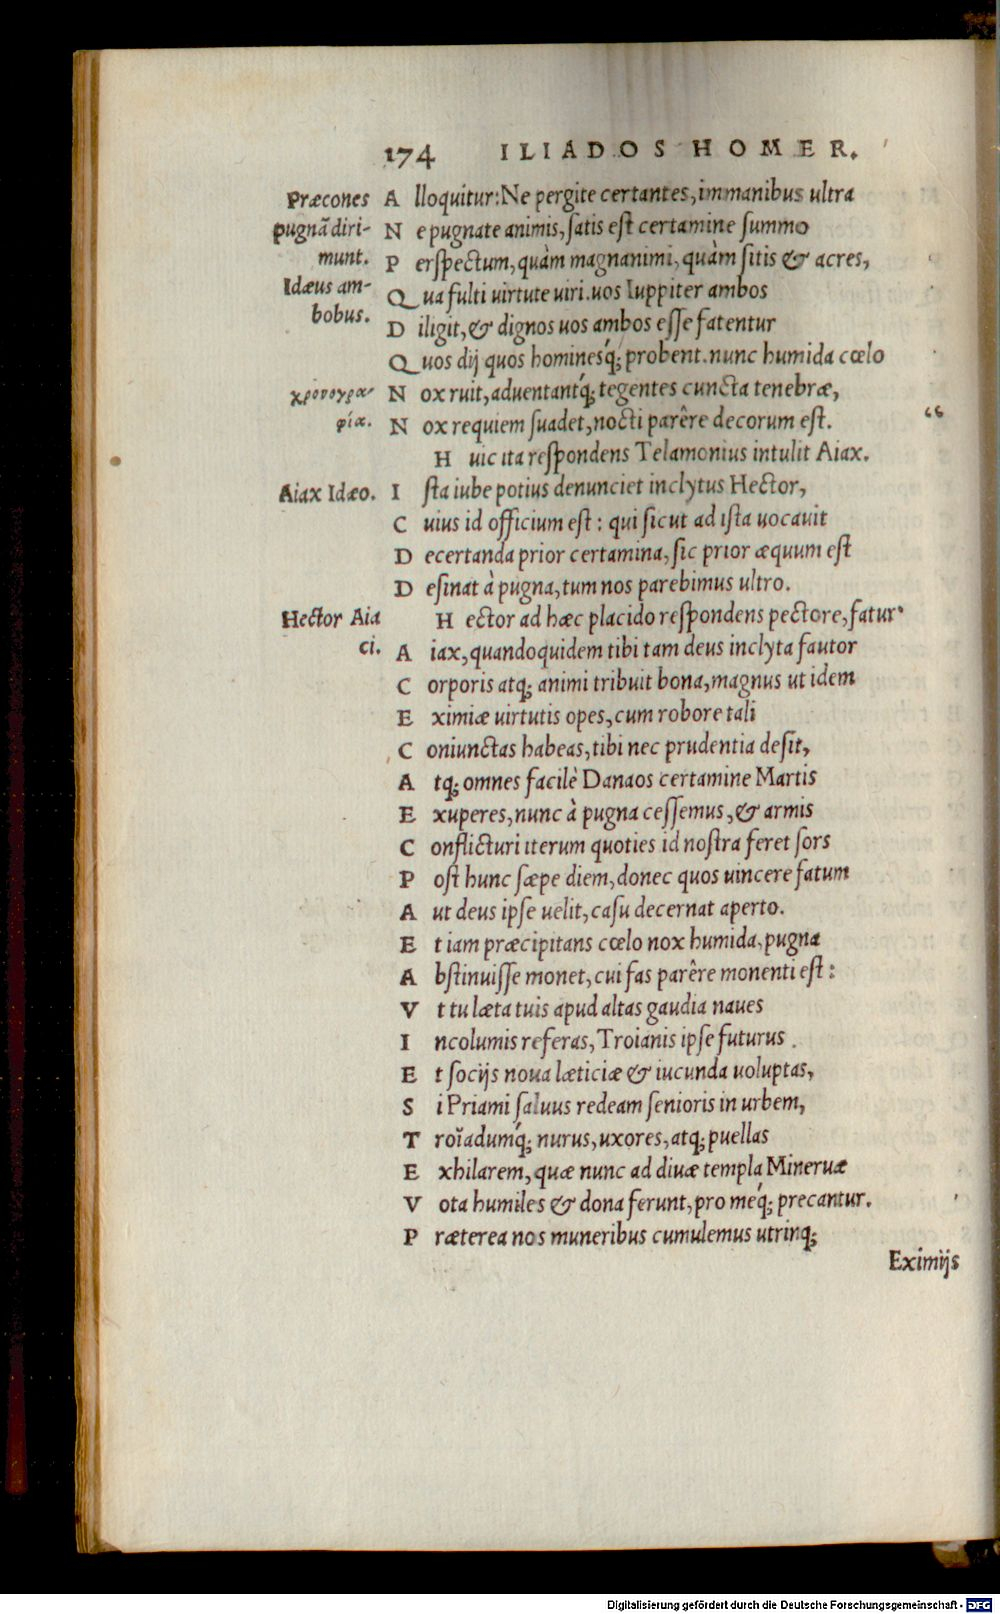 174 ILIADOS HOMER.
Præcones
pugnã diri-
munt.
Idæus am-
bobus.
Alloquitur: Ne pergite certantes, immanibus ultra
Ne pugnate animis, satis est certamine summo
Perspectum, quàm magnanimi, quàm sitis & acres,
Qua fulti uirtute uiri. uos Iuppiter ambos
Diligit, & dignos uos ambos esse fatentur
Quos dij quos hominesq́; probent. nunc humida cœlo
χρονογρα-
φία.
Nox ruit, aduentantq́; tegentes cuncta tenebræ,
Nox requiem suadet, nocti parêre decorum est.
Huic ita respondens Telamonius intulit Aiax.
Aiax Idæo.
Ista iube potius denunciet inclytus Hector,
Cuius id officium est: qui sicut ad ista uocauit
Decertanda prior certamina, sic prior æquum est
Desinat à pugna, tum nos parebimus ultro.
Hector Aia
ci.
Hector ad hæc placido respondens pectore, fatur.
Aiax, quandoquidem tibi tam deus inclyta fautor
Corporis atq; animi tribuit bona, magnus ut idem
Eximiæ uirtutis opes, cum robore tali
Coniunctas habeas, tibi nec prudentia desit,
Atq; omnes facilè Danaos certamine Martis
Exuperes, nunc à pugna cessemus, & armis
Conflicturi iterum quoties id nostra feret sors
Post hunc sæpe diem, donec quos uincere fatum
Aut deus ipse uelit, casu decernat aperto.
Etiam præcipitans cœlo nox humida, pugna
Abstinuisse monet, cui fas parêre monenti est:
Vt tu læta tuis apud altas gaudia naues
Incolumis referas, Troianis ipse futurus.
Et socijs noua læticiæ & iucunda uoluptas,
Si Priami saluus redeam senioris in urbem,
Troïadumq́; nurus, uxores, atq; puellas
Exhilarem, quæ nunc ad diuæ templa Mineruæ
Vota humiles & dona ferunt, pro meq́; precantur.
Præterea nos muneribus cumulemus utrinq;
Eximijs
Digitalisierung gefördert durch die Deutsche Forschungsgemeinschaft - DFG